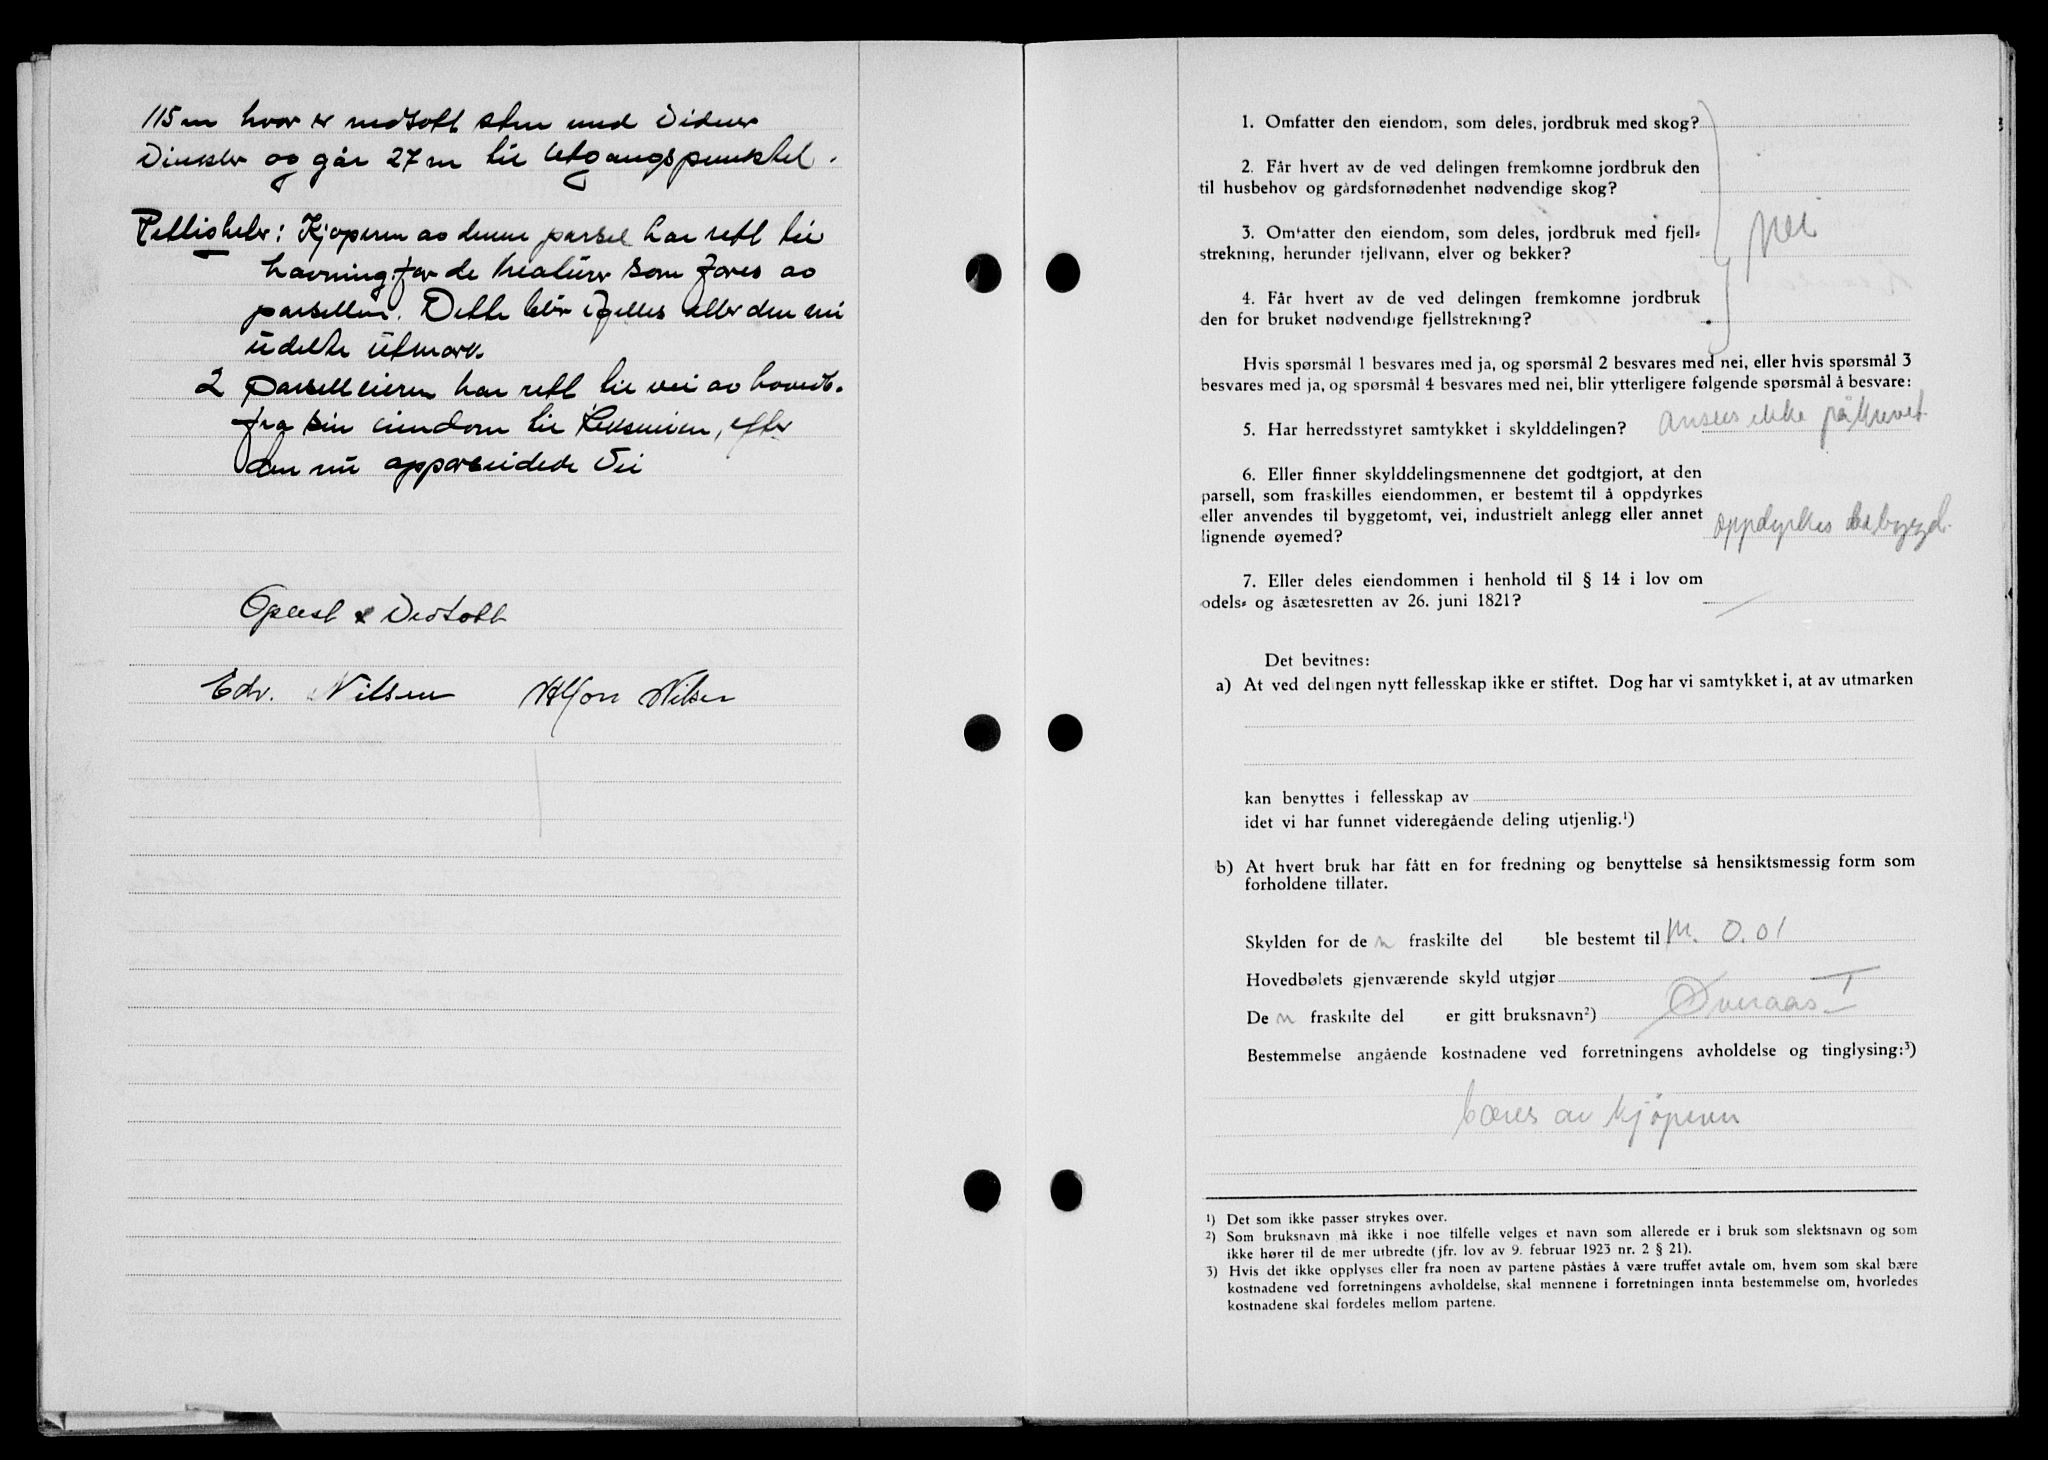 115 m hvor er nedsatt sten med Vidner
Vinkler og går 27 m til Utgangspunktet.
Rettigheter: Kjøperen av denne parsel har rett til
havning for de kreaturer som fores av
parsellen. Dette blir i felles eller den nu
udelte utmark
2 parselleieren har rett til vei av hovedb.
fra sin eiendom til Riksveien, efter
den nu opparbeidede Vei
Oplest & Vedtatt
Edv. Nilsen Alfon Nilsen
1. Omfatter den eiendom, som deles, jordbruk med skog?
2. Får hvert av de ved delingen fremkomne jordbruk den
til husbehov og gårdsfornødenhet nødvendige skog?
3. Omfatter den eiendom, som deles, jordbruk med fjell-
strekning, herunder fjellvann, elver og bekker?
nei
4. Får hvert av de ved delingen fremkomne jordbruk
den for bruket nødvendige fjellstrekning?
Hvis spørsmål 1 besvares med ja, og spørsmål 2 besvares med nei, eller hvis spørsmål 3
besvares med ja, og spørsmål 4 besvares med nei, blir ytterligere følgende spørsmål å besvare:
5. Har herredsstyret samtykket i skylddelingen? ansees ikke påkrevet
6. Eller finner skylddelingsmennene det godtgjort, at den
parsell, som fraskilles eiendommen, er bestemt til å oppdyrkes
eller anvendes til byggetomt, vei, industrielt anlegg eller annet
lignende øyemed? oppdyrkes bebygd.
7. Eller deles eiendommen i henhold til § 14 i lov om
odels- og åsætesretten av 26. juni 1821? —
Det bevitnes:
a) At ved delingen nytt fellesskap ikke er stiftet. Dog har vi samtykket i, at av utmarken
kan benyttes i fellesskap av
idet vi har funnet videregående deling utjenlig.¹)
b) At hvert bruk har fått en for fredning og benyttelse så hensiktsmessig form som
forholdene tillater.
Skylden for de n fraskilte del ble bestemt til m. 0.01
Hovedbølets gjenværende skyld utgjør
De n fraskilte del er gitt bruksnavn²) Øveraas I
Bestemmelse angående kostnadene ved forretningens avholdelse og tinglysing:³)
bæres av kjøperen
¹) Det som ikke passer strykes over.
²) Som bruksnavn må ikke i noe tilfelle velges et navn som allerede er i bruk som slektsnavn og som
ikke hører til de mer utbredte (jfr. lov av 9. februar 1923 nr. 2 § 21).
3) Hvis det ikke opplyses eller fra noen av partene påståes å være truffet avtale om, hvem som skal bære
kostnadene ved forretningens avholdelse, skal mennene i forretningen innta bestemmelse om, hvorledes
kostnadene skal fordeles mellom partene.